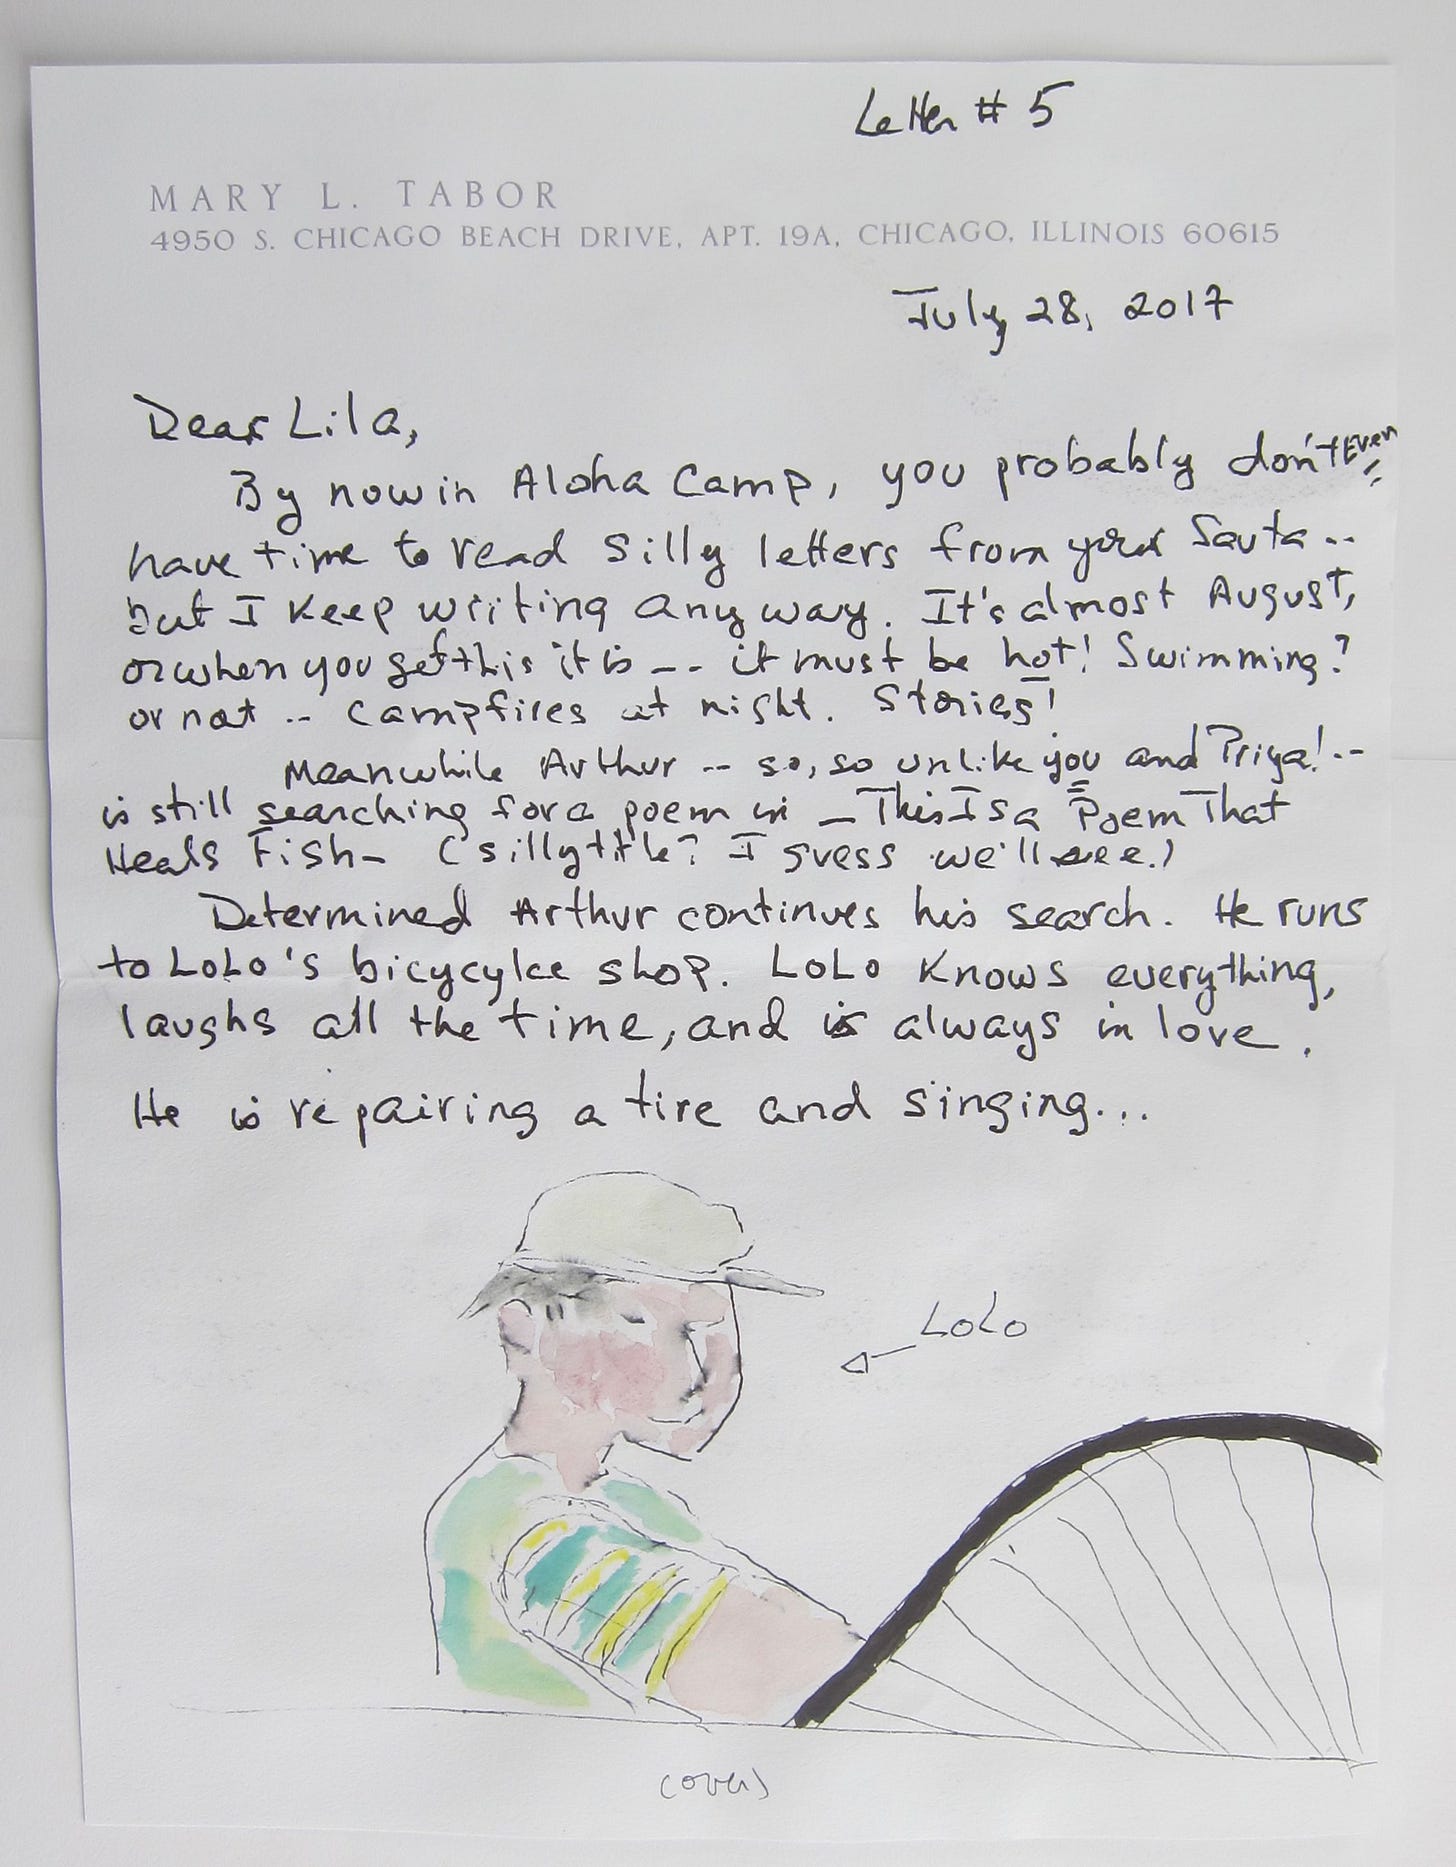 Letter # 5
MARY L. TABOR
4950 S. CHICAGO BEACH DRIVE, APT. 19A, CHICAGO, ILLINOIS 60615
July 28, 2017
Dear Lila,
By now in Aloha Camp, you probably don't Even
have time to read silly letters from your Savta --
but I keep writing anyway. It's almost August,
or when you get this it is -- it must be hot! Swimming?
or not -- campfires at night. Stories!
Meanwhile Arthur -- so, so unlike you and Priya! --
is still searching for a poem in _ This Is a Poem That
Heals Fish _ (silly title? I guess we'll see.)
Determined Arthur continues his search. He runs
to LoLo's bicycylce shop. LoLo knows everything,
laughs all the time, and is always in love.
He is repairing a tire and singing...
LoLo
(over)